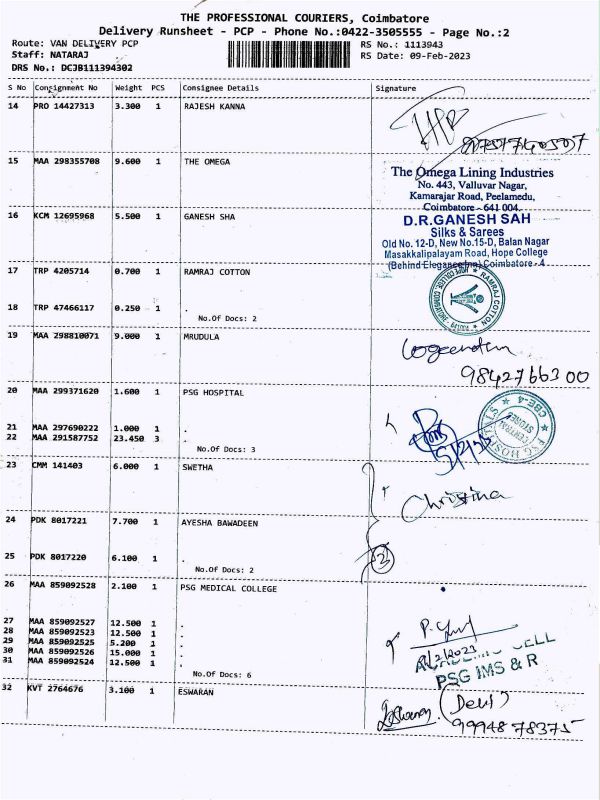 THE PROFESSIONAL COURIERS, Coimbatore
Delivery Runsheet - PCP - Phone No.:0422-3505555 - Page No.:2
Route: VAN DELIVERY PCP
RS No.: 1113943
Staff: NATARAJ
RS Date: 09-Feb-2023
DRS No.: DCJB111394302
S No Consignment No Weight PCS Consignee Details Signature
14 PRO 14427313 3.300 1 RAJESH KANNA
15 MAA 298355708 9.600 1 THE OMEGA
The Omega Lining Industries
No. 443, Valluvar Nagar,
Kamarajar Road, Peelamedu,
Coimbatore - 641 004.
16 KCM 12695968 5.500 1 GANESH SHA
D.R.GANESH SAH
Silks & Sarees
Old No. 12-D, New No.15-D, Balan Nagar
Masakkalipalayam Road, Hope College
(Behind Elegance Inn) Coimbatore - 4
17 TRP 4205714 0.700 1 RAMRAJ COTTON
RAMRAJ COTTON
18 TRP 47466117 0.250 1 .
No.Of Docs: 2
19 MAA 298810071 9.000 1 MRUDULA
98427663 00
20 MAA 299371620 1.600 1 PSG HOSPITAL
PSG HOSPITAL CBE-4
CENTRAL STORES
21 MAA 297690222 1.000 1 .
22 MAA 291587752 23.450 3 .
No.Of Docs: 3
23 CMM 141403 6.000 1 SWETHA
Christina
24 PDK 8017221 7.700 1 AYESHA BAWADEEN
25 PDK 8017220 6.100 1 .
No.Of Docs: 2
2
26 MAA 859092528 2.100 1 PSG MEDICAL COLLEGE
27 MAA 859092527 12.500 1 .
28 MAA 859092523 12.500 1 .
29 MAA 859092525 5.200 1 .
30 MAA 859092526 15.000 1 .
31 MAA 859092524 12.500 1 .
No.Of Docs: 6
ACADEMIC CELL
PSG IMS & R
32 KVT 2764676 3.100 1 ESWARAN
99948 78375